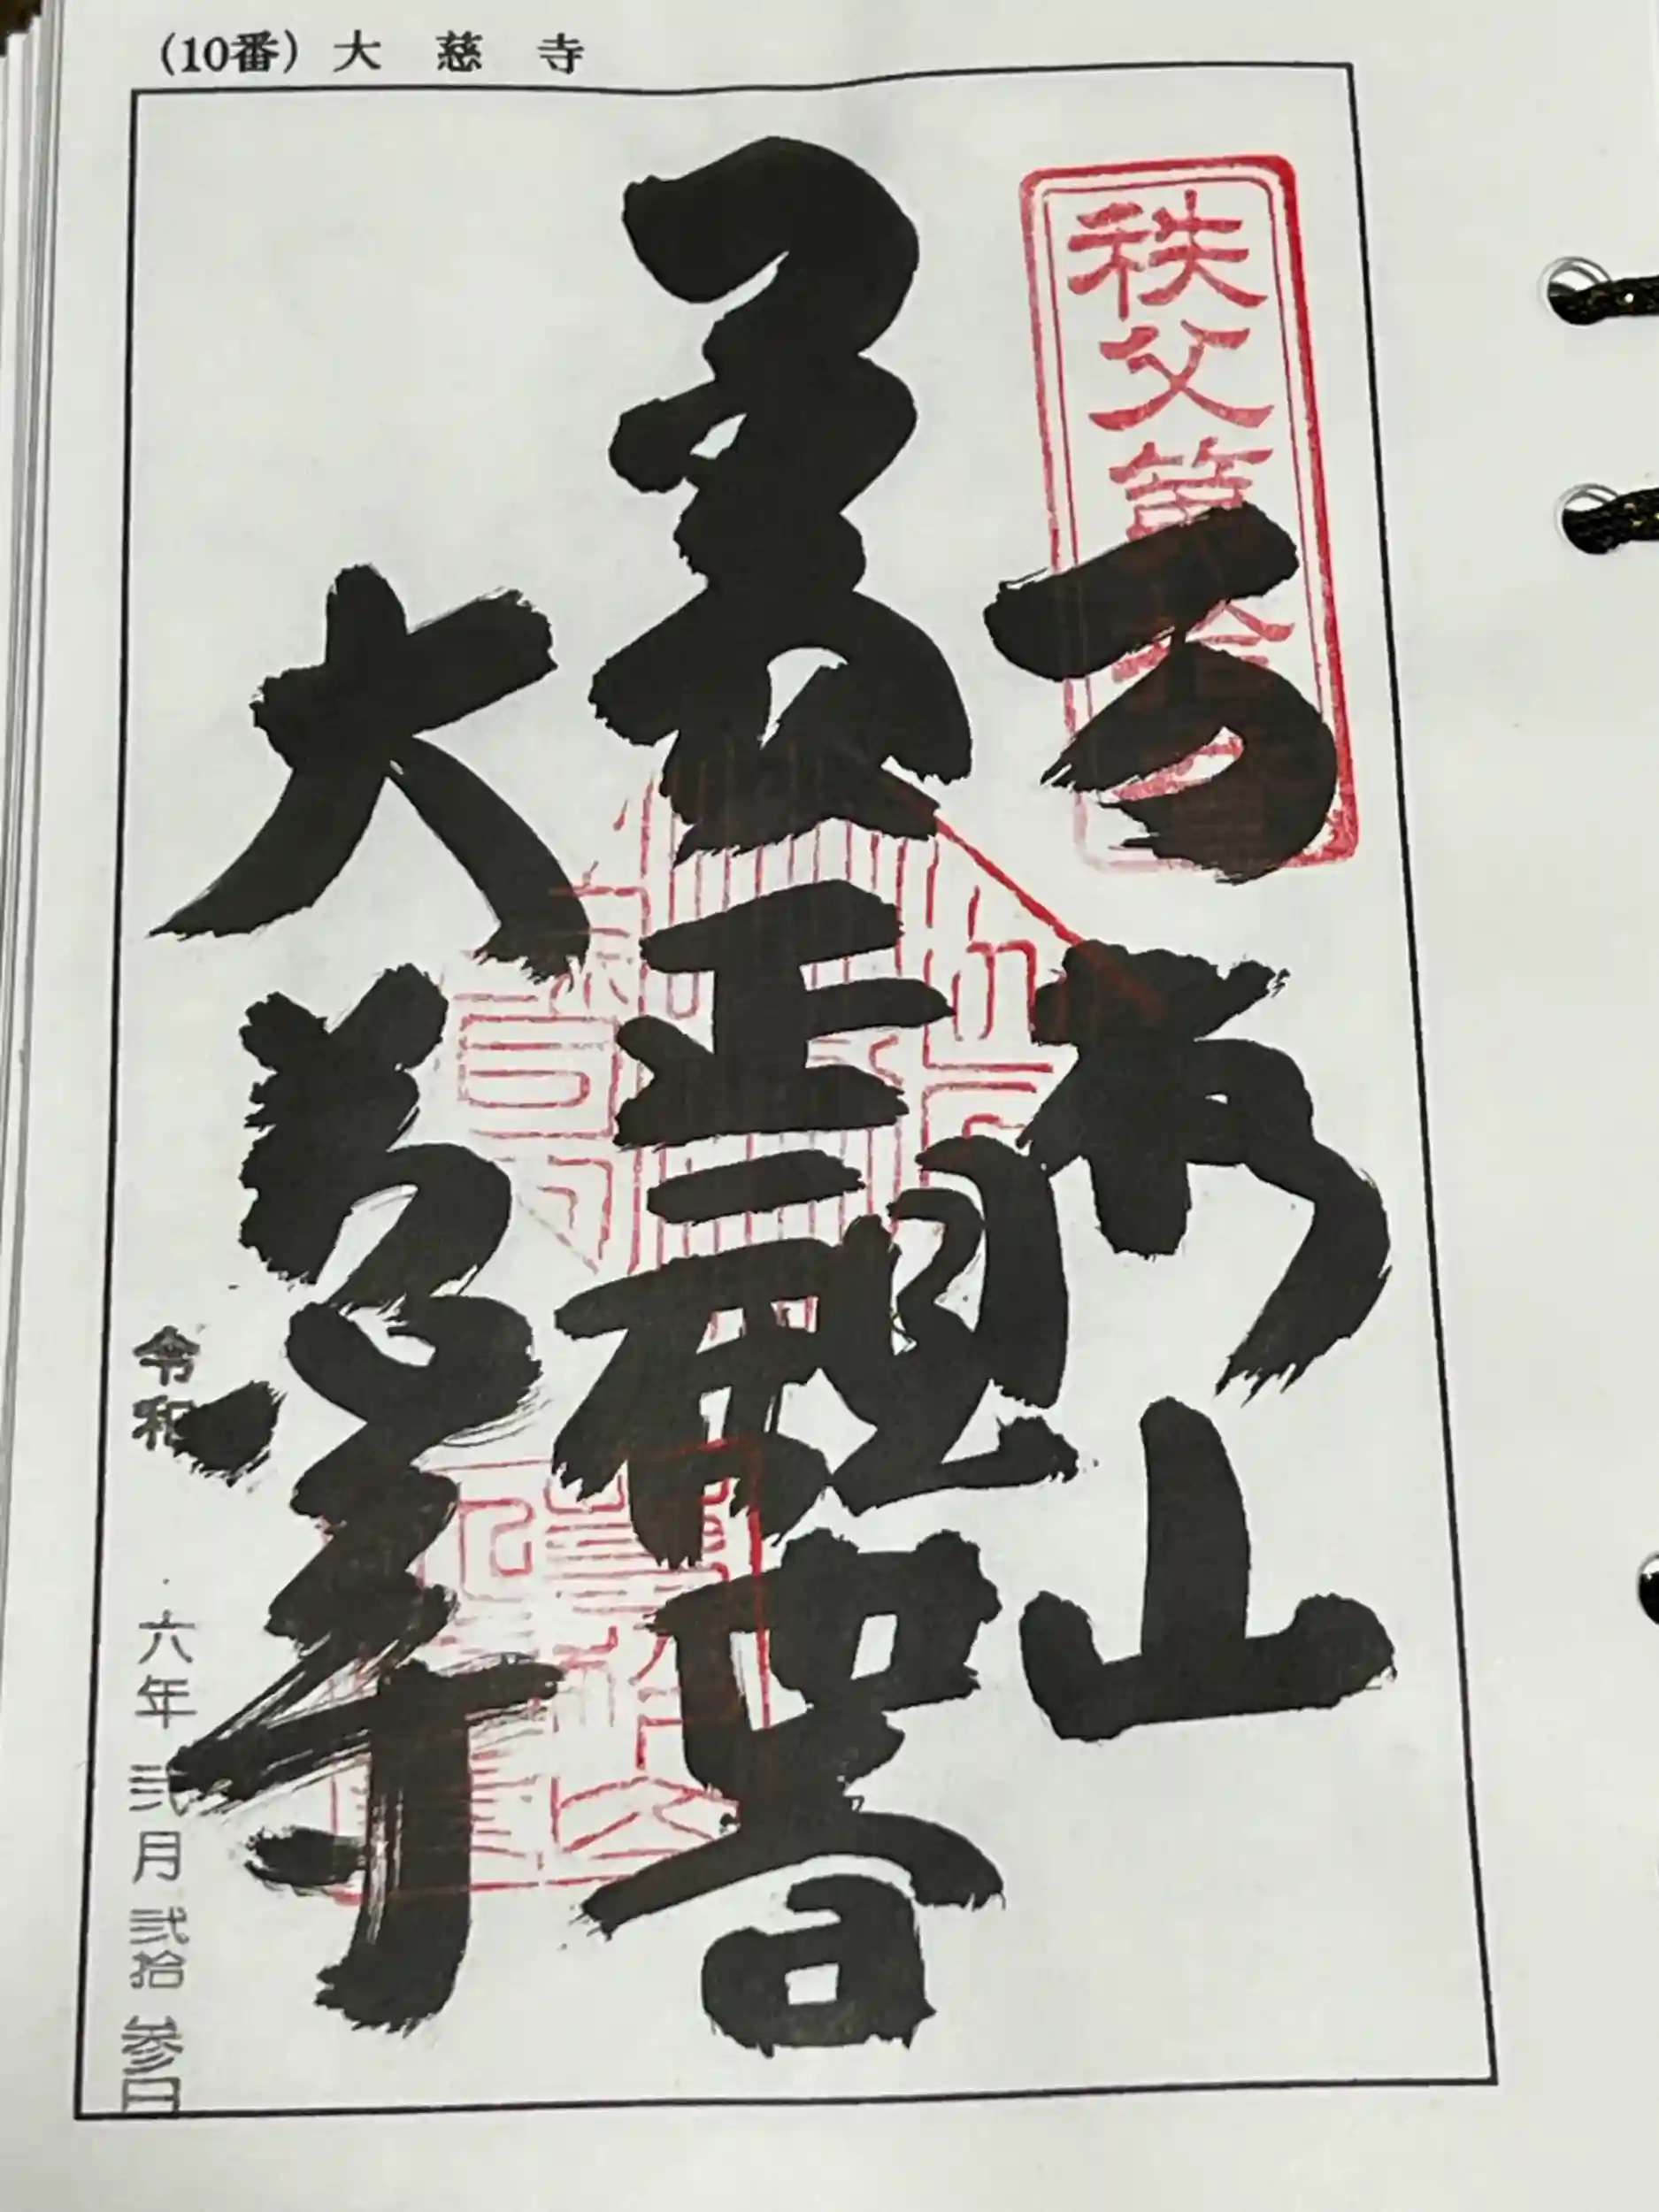 (10番) 大慈寺
秩父第拾番
万松山
聖観世音
大慈寺
令和六年弐月弐拾参日